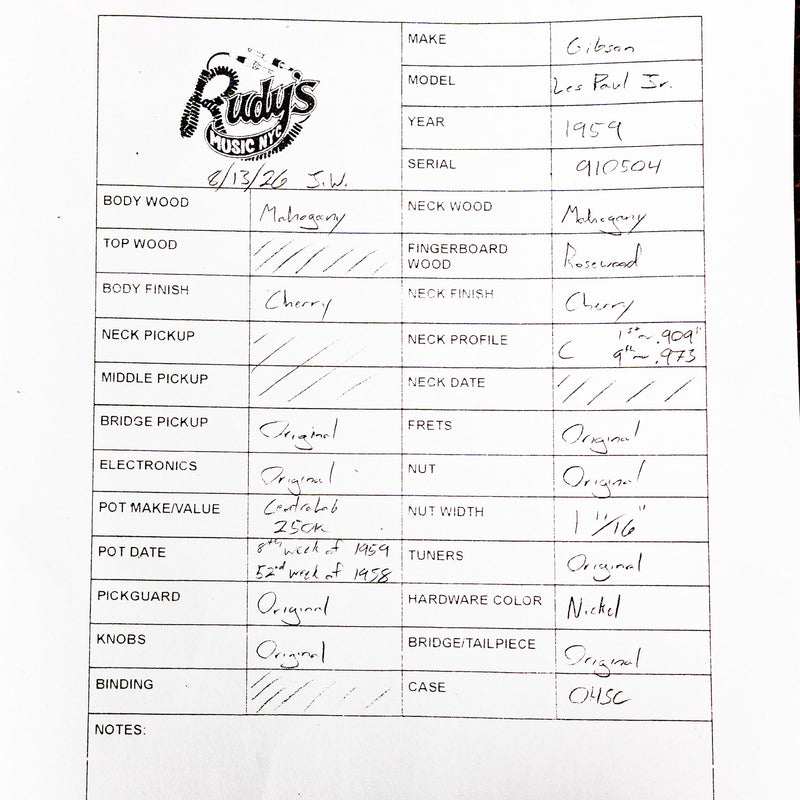 Rudy's
MUSIC NYC
8/13/26 J.W.
MAKE Gibson
MODEL Les Paul Jr.
YEAR 1959
SERIAL 910504
BODY WOOD Mahogany NECK WOOD Mahogany
TOP WOOD FINGERBOARD
WOOD Rosewood
BODY FINISH Cherry NECK FINISH Cherry
NECK PICKUP NECK PROFILE C 1st ~ .909"
9th ~ .973
MIDDLE PICKUP NECK DATE
BRIDGE PICKUP Original FRETS Original
ELECTRONICS Original NUT Original
POT MAKE/VALUE Centralab
250K NUT WIDTH 1 11/16"
POT DATE 8th week of 1959
52nd week of 1958 TUNERS Original
PICKGUARD Original HARDWARE COLOR Nickel
KNOBS Original BRIDGE/TAILPIECE Original
BINDING CASE OHSC
NOTES: